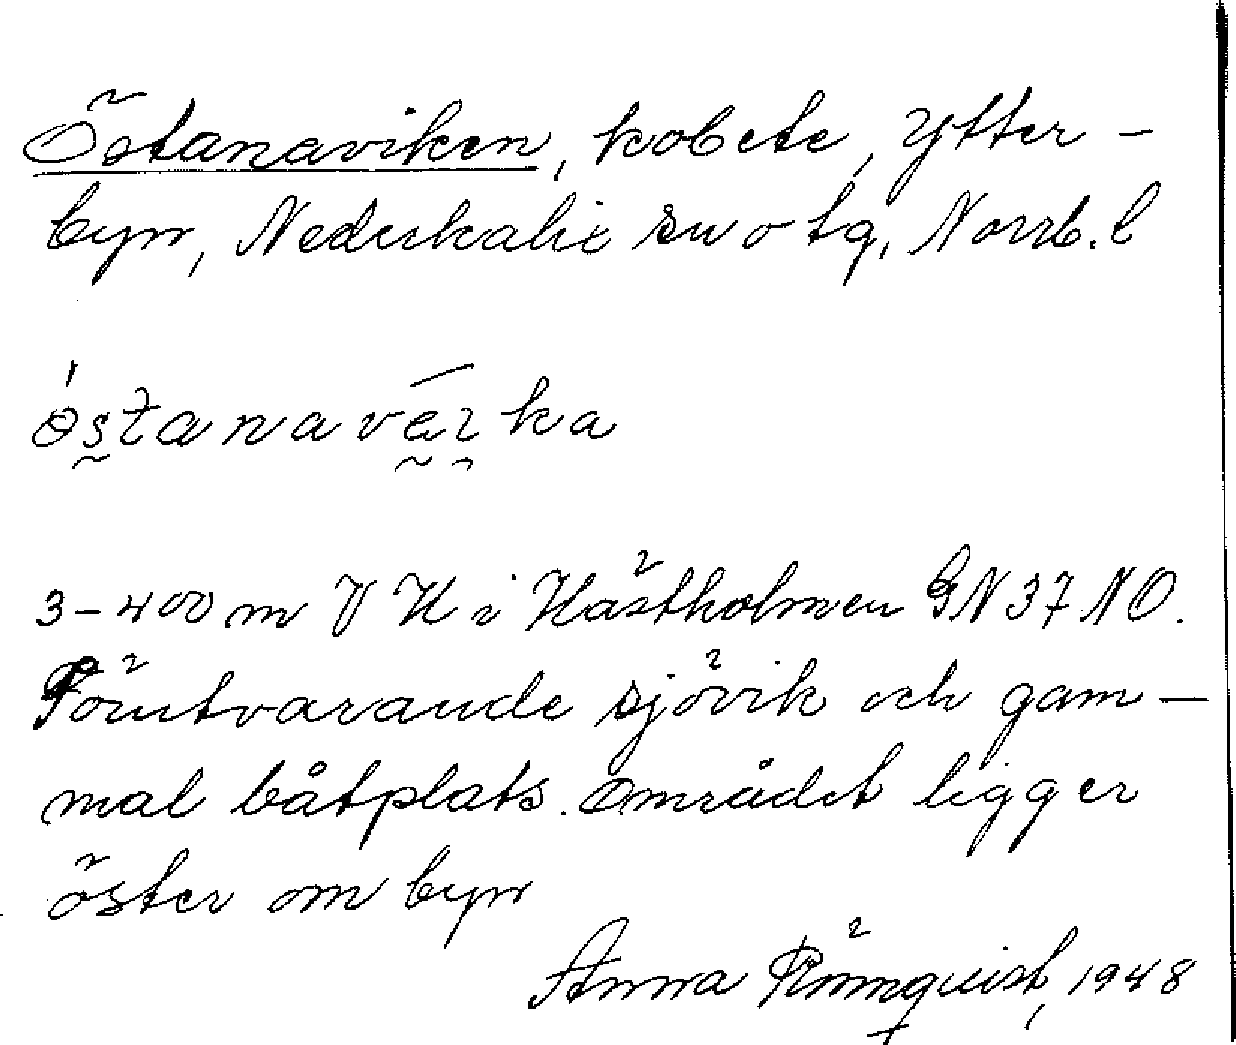 Östanaviken, kobete, Ytter-
byn, Nederkalix sn o tg, Norrb. l
3-400 m V K i Hästholmen GN 37 NO.
Förutvarande sjövik och gam-
mal båtplats. Området ligger
öster om byn
Anna Rönnqvist, 1948